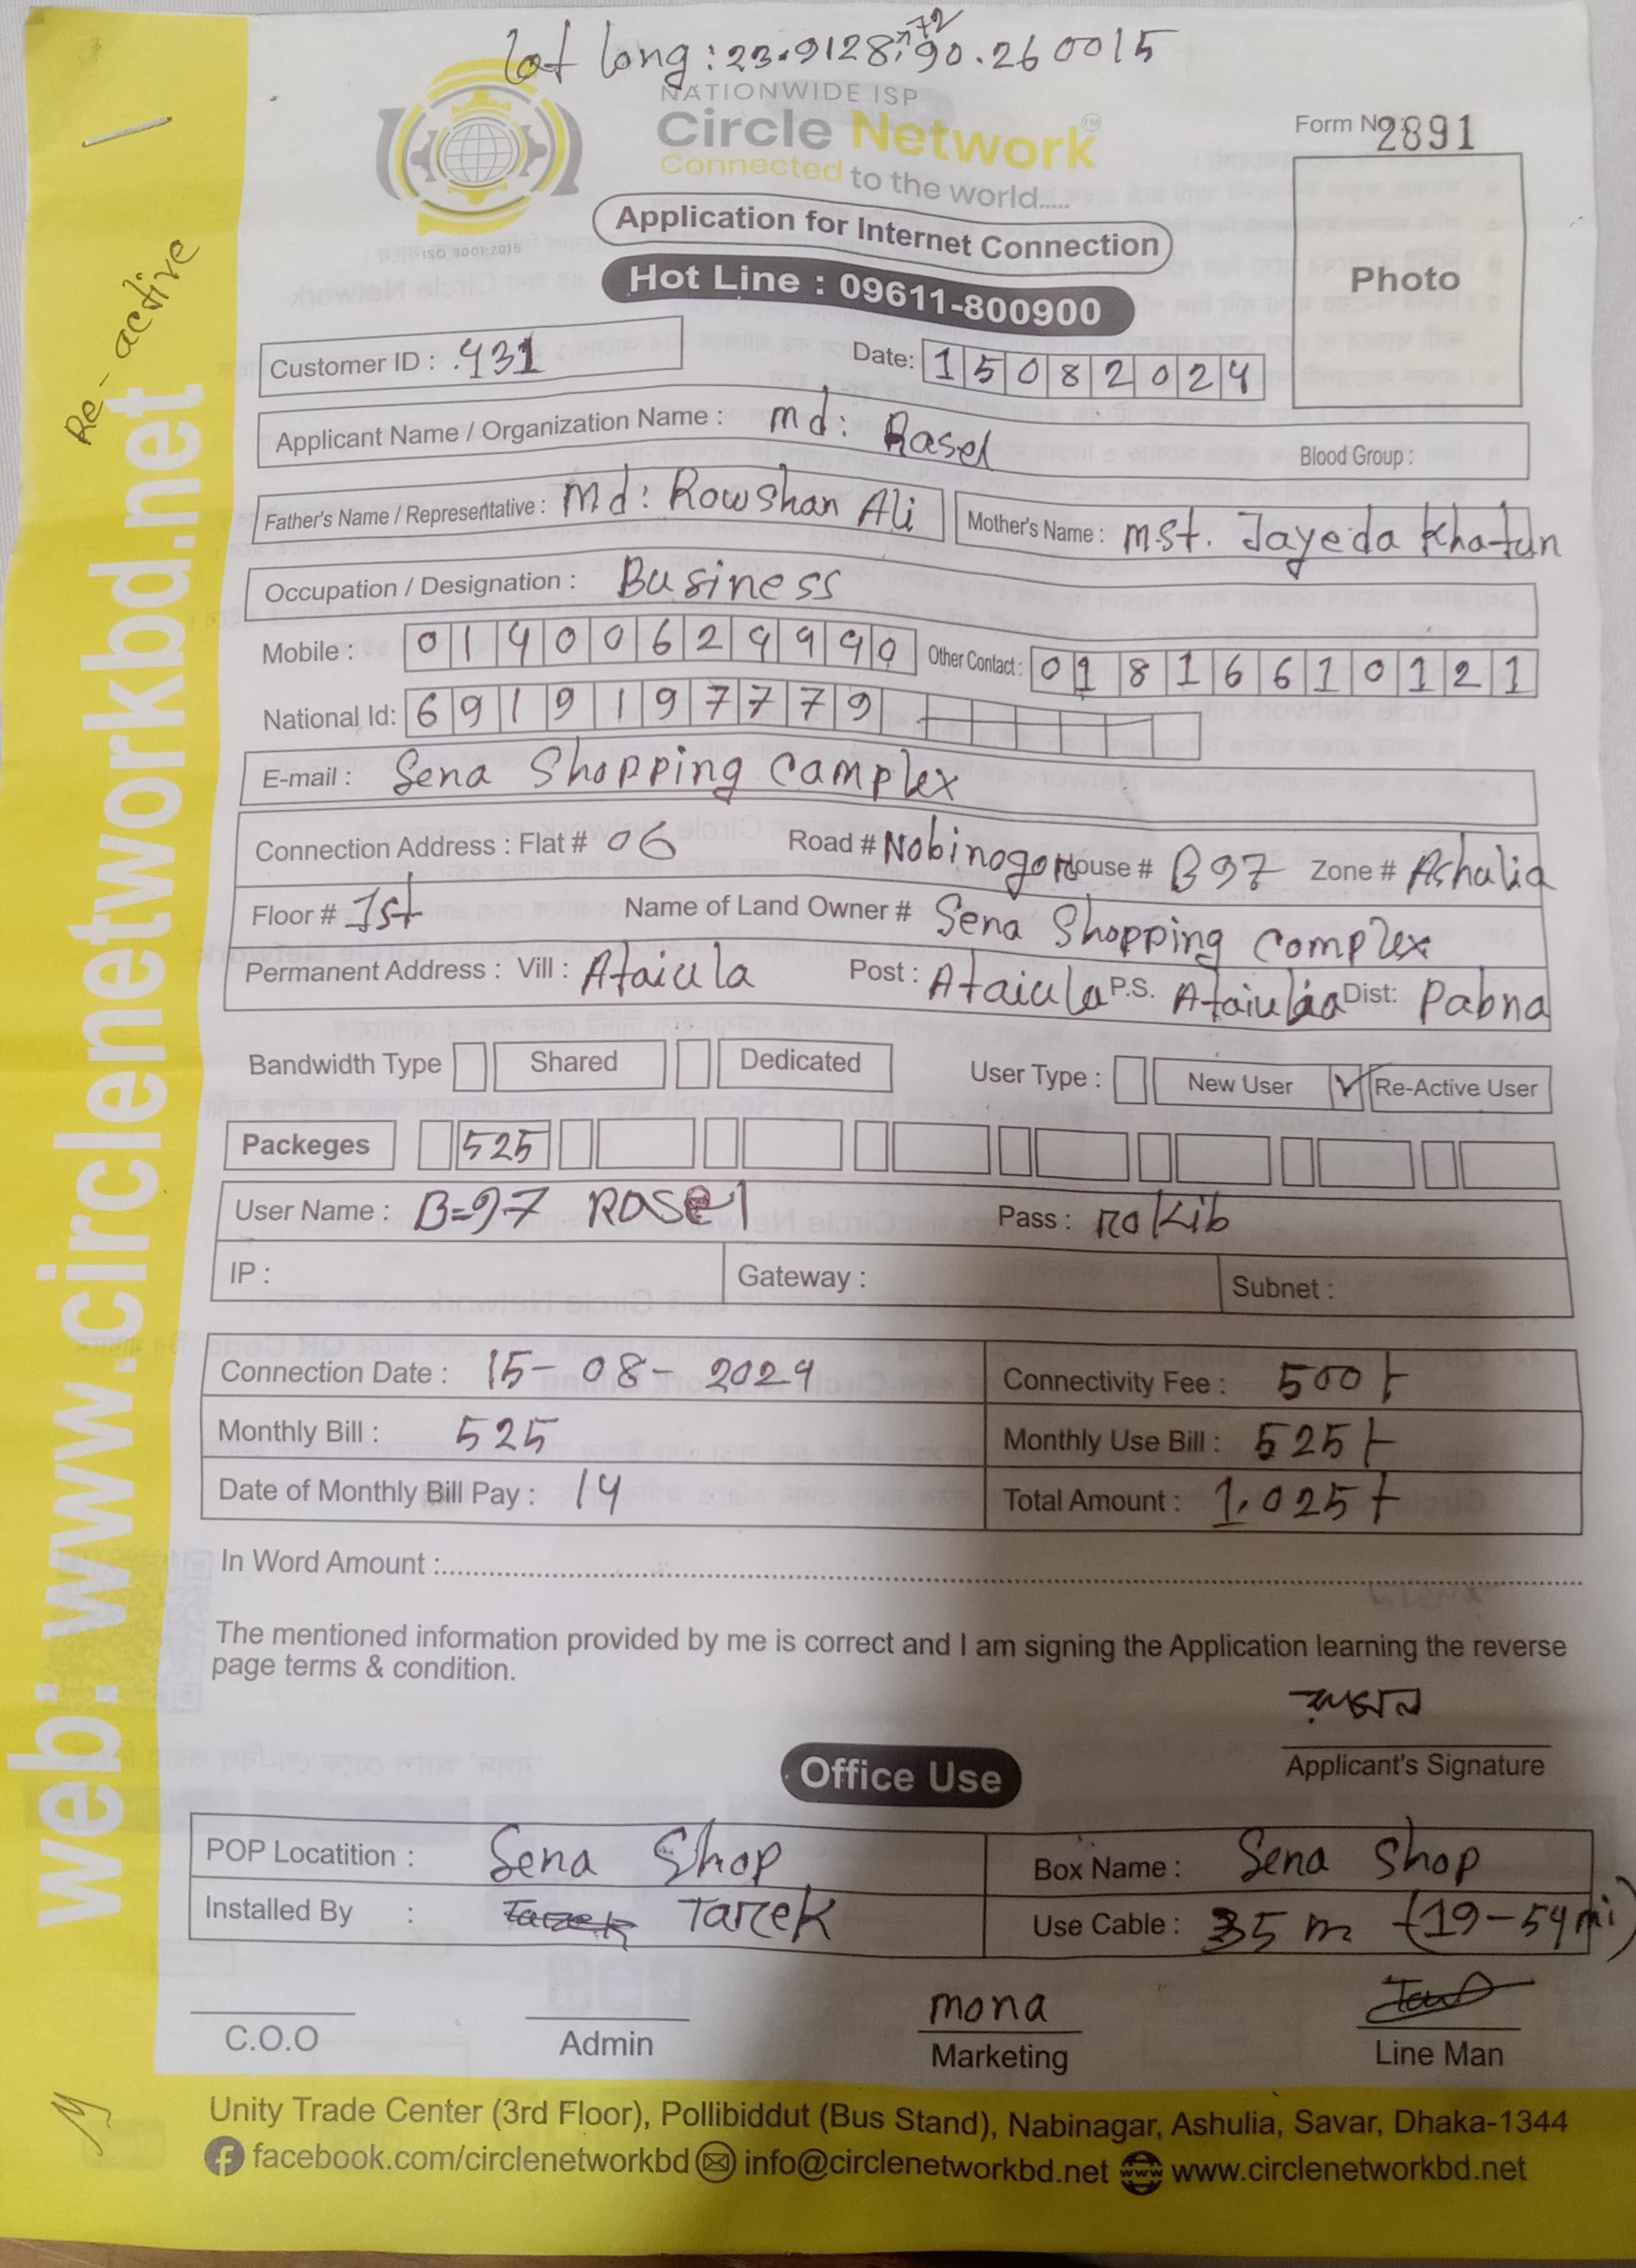 lat long: 23.9128772, 90.260015
NATIONWIDE ISP
Circle Network TM
Connected to the world.....
ISO 9001:2015
Form No: 2891
Application for Internet Connection
Hot Line : 09611-800900
Photo
Re-active
web: www.circlenetworkbd.net
Customer ID : 431
Date: 15082024
Applicant Name / Organization Name : Md: Rasel
Blood Group :
Father's Name / Representative : Md: Rowshan Ali Mother's Name : Mst. Jayeda Khatun
Occupation / Designation : Business
Mobile : 01400629990 Other Contact : 01816610121
National Id: 6919197779
E-mail : Sena Shopping Camplex
Connection Address : Flat # 06 Road # Nobinogor House # B97 Zone # Ashulia
Floor # 1st Name of Land Owner # Sena Shopping Complex
Permanent Address : Vill : Ataicula Post : Ataicula P.S. Dist: Pabna
Bandwidth Type Shared Dedicated User Type : New User ✓ Re-Active User
Packeges 525
User Name : B=97 Rasel Pass : rakib
IP : Gateway : Subnet :
Connection Date : 15-08-2024 Connectivity Fee : 500/-
Monthly Bill : 525 Monthly Use Bill : 525/-
Date of Monthly Bill Pay : 14 Total Amount : 1,025/-
In Word Amount :
The mentioned information provided by me is correct and I am signing the Application learning the reverse
page terms & condition.
রাসেল
Applicant's Signature
Office Use
POP Locatition : Sena Shop Box Name : Sena Shop
Installed By : Tarek Tarek Use Cable : 35 m (19-54 mi)
mona
C.O.O Admin Marketing Line Man
Unity Trade Center (3rd Floor), Pollibiddut (Bus Stand), Nabinagar, Ashulia, Savar, Dhaka-1344
facebook.com/circlenetworkbd info@circlenetworkbd.net www www.circlenetworkbd.net